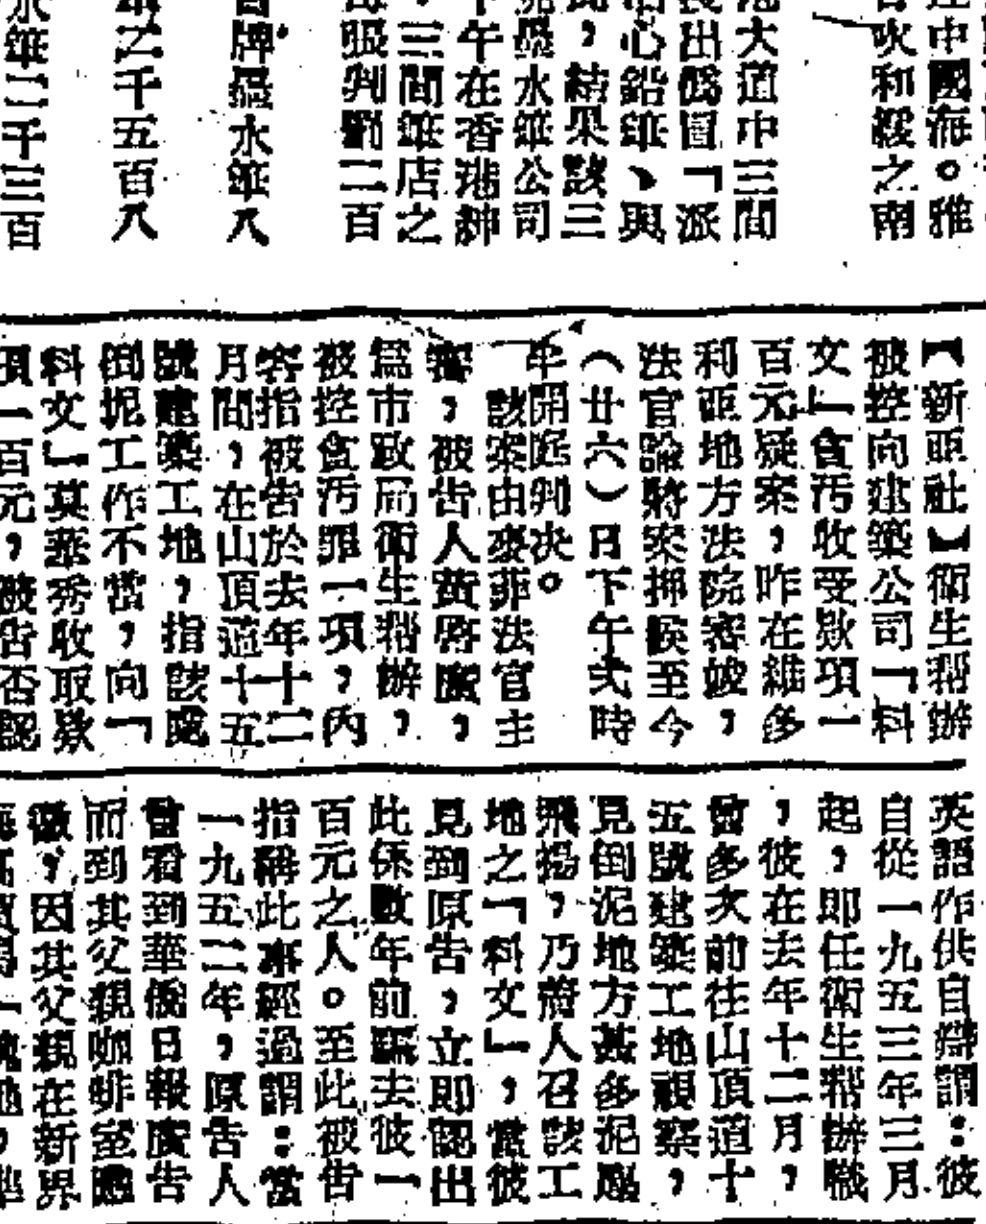 中國海。雅
吹和緩之南
大道中三間
出僞冒「派
心鉛筆、與
，結果該三
水筆公司
午在香港紳
，三間筆店之
判罰二百
牌墨水筆八
之千五百八
水筆二千三百
【新亞社】衛生帮辦
被控向建築公司「科
文」貪污收受欵項一
百元疑案，昨在維多
利亞地方法院審竣，
法官諭將案押候至今
（廿六）日下午弍時
半開庭判决。
該案由麥菲法官主
審，被告人黃啓廣，
爲市政局衛生帮辦，
被控貪污罪一項，內
容指被告於去年十二
月間，在山頂道十五
號建築工地，指該處
倒坭工作不當，向「
科文」莫燕秀收取欵
項一百元，被告否認
英語作供自辯謂：彼
自從一九五三年三月
起，即任衛生帮辦職
，彼在去年十二月，
曾多次前往山頂道十
五號建築工地視察，
見倒泥地方甚多泥塵
飛揚，乃着人召該工
地之「科文」，當彼
見到原告，立即認出
此係數年前騙去彼一
百元之人。至此被告
指稱此事經過謂：當
一九五二年，原告人
曾看到華僑日報廣告
而到其父親咖啡室應
徵，因其父親在新界